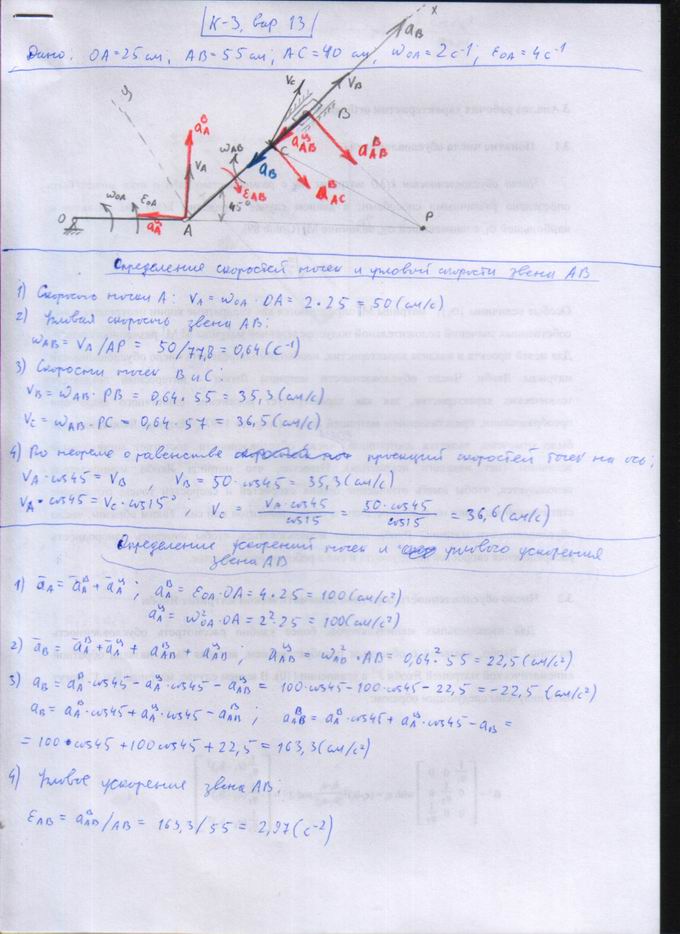 К-3, вар 13
Дано: OA=25 см, AB=55 см; AC=40 см, ω_OA=2 с⁻¹; ε_OA=4 с⁻¹
x
a_B
y
V_C
V_B
B
a_A^в
ω_AB
a_AB^ц
a_AB^в
V_A
C
a_B
ω_OA
ε_OA
ε_AB
a_AC^в
45°
O
a_A^ц
A
P
Определение скоростей точек и угловой скорости звена AB
1) Скорость точки A: V_A = ω_OA · OA = 2·25 = 50 (см/с)
2) Угловая скорость звена AB:
ω_AB = V_A/AP = 50/77,8 = 0,64 (с⁻¹)
3) Скорости точек B и C:
V_B = ω_AB · PB = 0,64 · 55 = 35,3 (см/с)
V_C = ω_AB · PC = 0,64 · 57 = 36,5 (см/с)
4) По теореме о равенстве проекций скоростей точек на ось:
V_A · cos45 = V_B , V_B = 50 · cos45 = 35,3 (см/с)
V_A · cos45 = V_C · cos15° ; V_C = V_A · cos45 / cos15 = 50 · cos45 / cos15 = 36,6 (см/с)
Определение ускорений точек и углового ускорения
звена AB
1) ā_A = ā_A^в + ā_A^ц ; a_A^в = ε_OA · OA = 4·25 = 100 (см/с²)
a_A^ц = ω²_OA · OA = 2²·25 = 100 (см/с²)
2) ā_B = ā_A^в + ā_A^ц + ā_AB^в + ā_AB^ц ; a_AB^ц = ω_AB² · AB = 0,64² · 55 = 22,5 (см/с²)
3) a_B = a_A^в · cos45 − a_A^ц · cos45 − a_AB^ц = 100·cos45 − 100·cos45 − 22,5 = −22,5 (см/с²)
a_B = a_A^в · cos45 + a_A^ц · cos45 − a_AB^в ; a_AB^в = a_A^в · cos45 + a_A^ц · cos45 − a_B =
= 100·cos45 + 100cos45 + 22,5 = 163,3 (см/с²)
4) Угловое ускорение звена AB:
ε_AB = a_AB^в / AB = 163,3/55 = 2,97 (с⁻²)